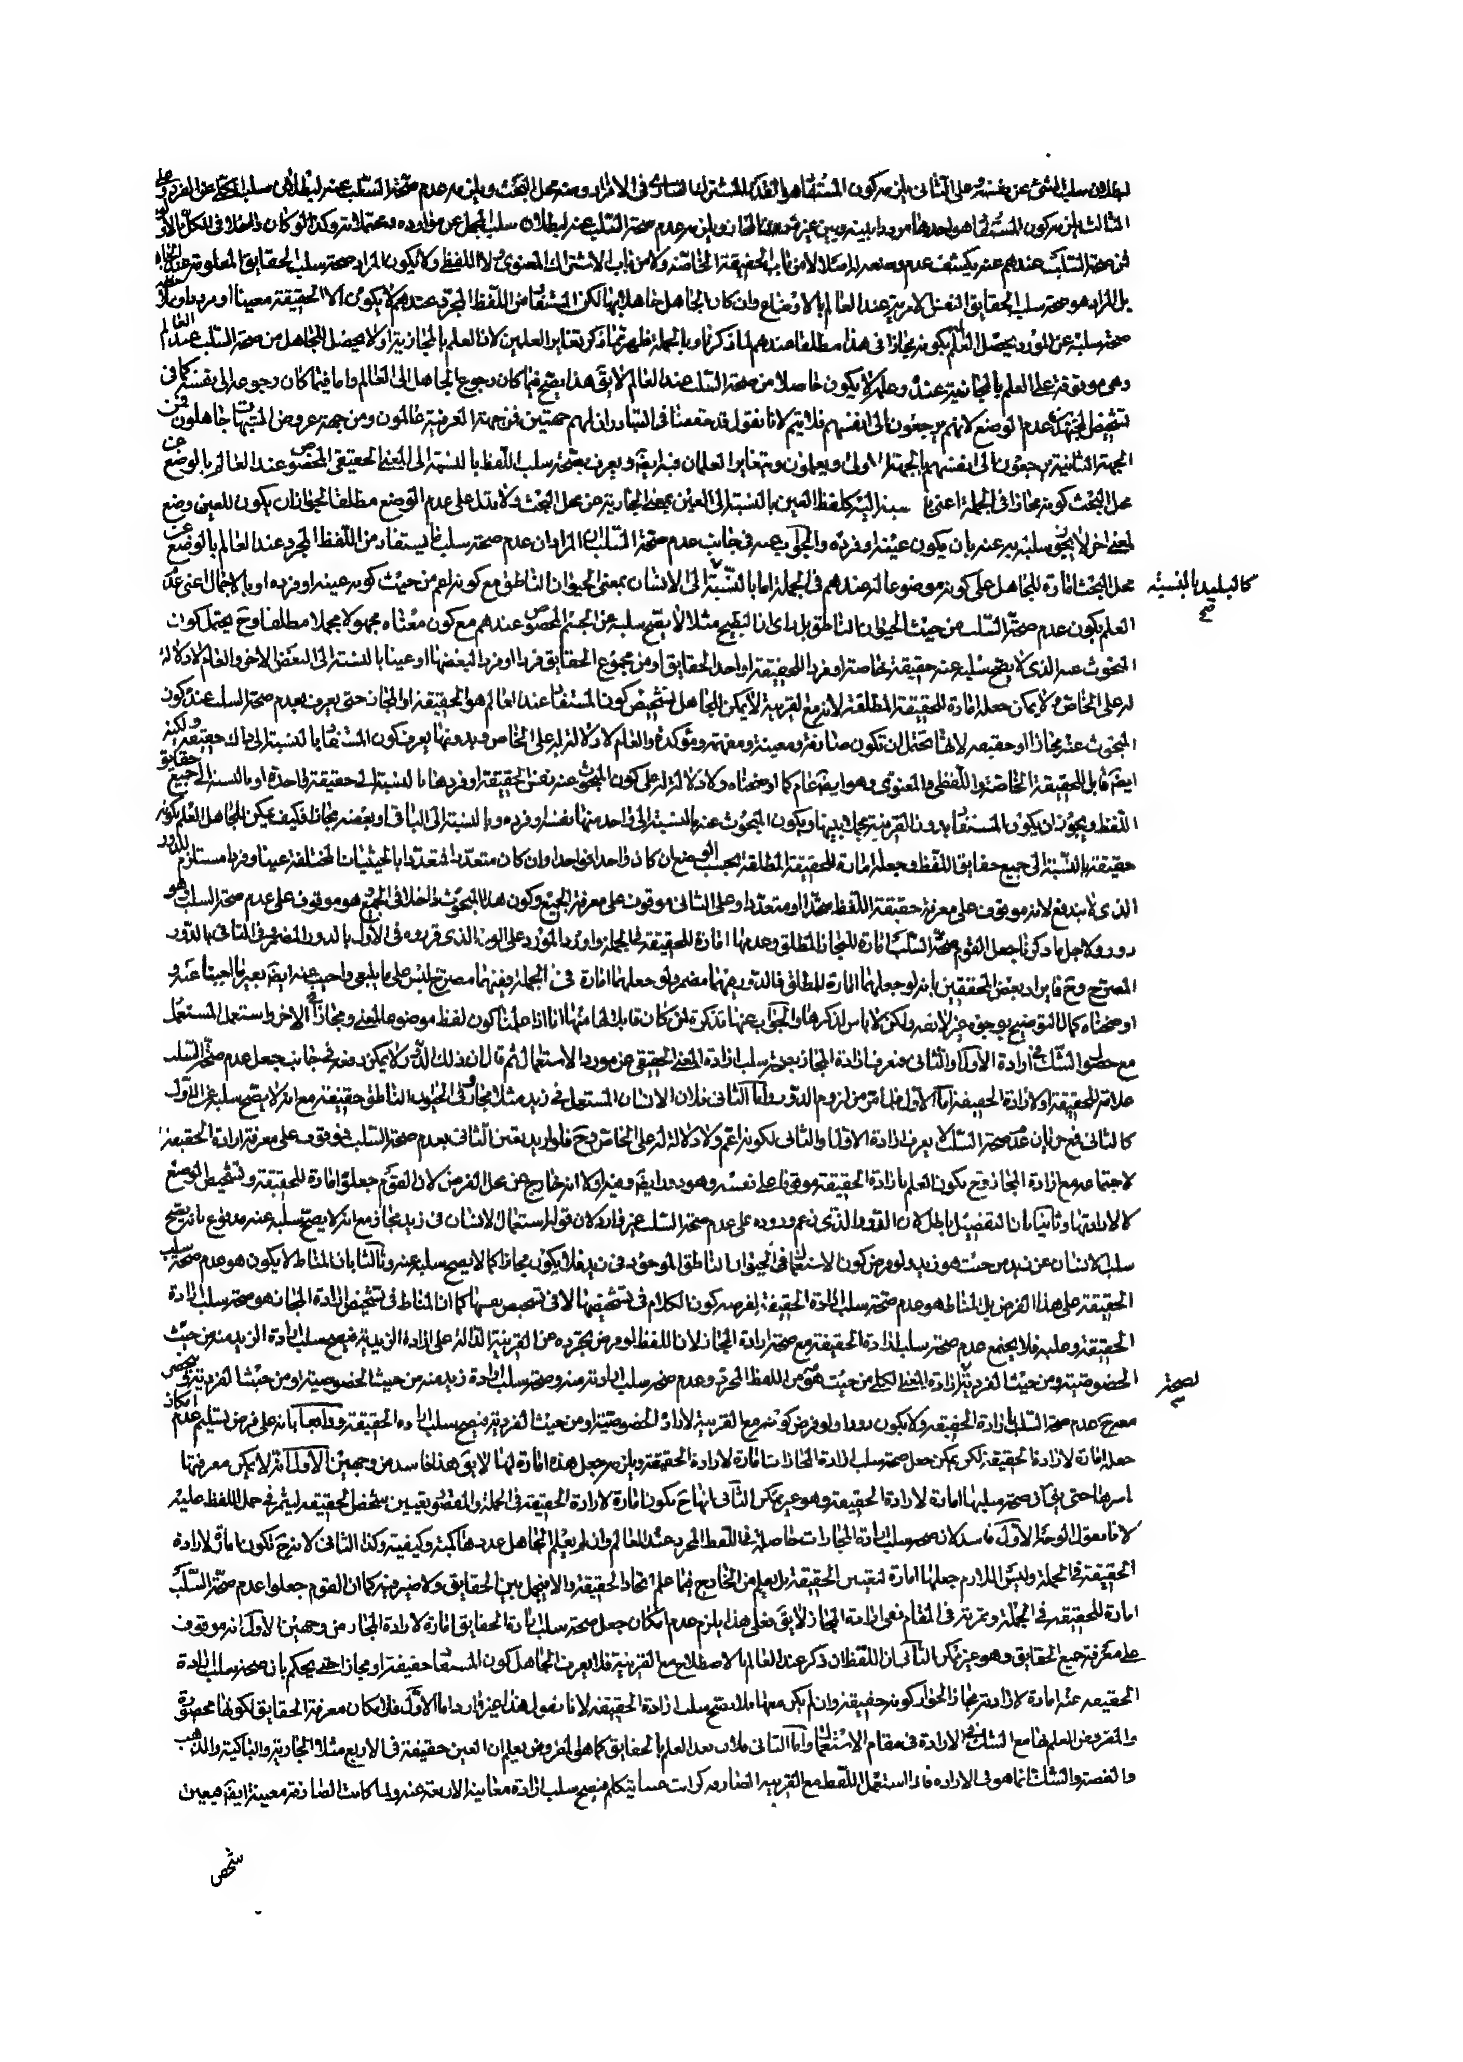 لبطلان سلب الشئ عن نفسه وعلى الثانى يلزم كون المستفاد هو القدر المشترك السارى فى الافراد و هو محل البحث و يلزمه عدم صحة السلب عنه لبطلان سلب الكلى عن الفرد و على
الثالث يلزم كون المستفاد هو احدهما مرددا بينه وبين غيره و يلزمه عدم صحة السلب عنه لبطلان سلب المجمل عن موارده و محتملاته وكذا لو كان داخلا فى الكل
صحة السلب عندهم عنه يكشف عدم وضعه له اصلا لا من باب الحقيقة الخاصة ولا من باب الاشتراك المعنوى ولا اللفظى ولا يكون المراد صحة سلب الحقايق المعلومة عند
بل المراد هو صحة سلب الحقايق النفس الامرية عند العالم بالاوضاع وان كان الجاهل جاهلا بها لكن المستفاد من اللفظ المجرد عندهم لا يكون الا الحقيقة معينا او مرددا
صحة سلبه عن المورد يحصل العلم بكونه مجازا فى هذا مطلقا عندهم لما ذكرنا وبالجملة ظهر مما ذكر تغاير العلمين لان العلم بالمجازية اولا يحصل للجاهل من صحة السلب عند العالم
وهى موقوفة على العلم بالمجازية عنده وعلمه لا يكون حاصلا من صحة السلب عند العالم لا يق هذا يصح فيما كان رجوع الجاهل الى العالم واما فيما كان رجوعه الى نفسه كما فى
تشخيص المجتهدين عدم الوضع لانهم يرجعون الى انفسهم فلا يتم لانا نقول قد حققنا فى التبادر ان لهم جهتين فمن جهة العرفية عالمون ومن جهة عروض الشبهات جاهلون فمن
الجهة الثانية يرجعون الى انفسهم بالجهة الاولى ويعلمون و يتغاير العلمان فيه ايضا و يعرف بصحة سلب اللفظ بالنسبة الى المعنى الحقيقى المخصوص عند العالم بالوضع عن
محل البحث كونه مجازا فى الجملة اعنى بالنسبة اليه كلفظ العين بالنسبة الى العين بمعنى الجارية عن محل البحث ولا تدل على عدم الوضع مطلقا لجواز ان يكون للعين وضع
لمعنى اخر لا يجوز سلبه عنه بان يكون عينه او فرده والجواب عنه فى جانب عدم صحة السلب ان المراد ان عدم صحة سلب ما يستفاد من اللفظ المجرد عند العالم بالوضع عن
محل البحث امارة للجاهل على كونه موضوعا له عندهم فى الجملة اما بالنسبة الى الانسان بمعنى الحيوان الناطق مع كونه اعم من حيث كونه عينه او فرده او بالاجمال اعنى عدم
كالبليد بالنسبة
صح
العلم بكون عدم صحة السلب من حيث الحيوان الناطق بل راى ان البليد مثلا لا يصح سلبه عن الجسم المخصوص عندهم مع كون معناه مجهولا مجملا مطلقا وح يحتمل كون
المبحوث عنه الذى لا يصح سلبه عنه حقيقة خاصة او فردا للحقيقة او احد الحقايق او من مجموع الحقايق فردا او فردا لبعضها او عينا بالنسبة الى البعض الاخر والعام لا دلالة
له على الخاص ولا يمكن جعله امارة للحقيقة المطلقة لانه مع القرينة لا يمكن للجاهل تشخيص كون المستفاد عند العالم هو الحقيقة او المجاز حتى يعرف بعدم صحة السلب عنه كون
المبحوث عنه مجازا او حقيقة لانها تحتمل ان تكون صارفة و معينة و مفهمة و مؤكدة والعام لا دلالة له على الخاص و بدونها يعرف كون المستفاد بالنسبة الى ذلك حقيقة ولكنه
ايضا قابل للحقيقة الخاصة واللفظى والمعنوى وهو ايضا عام كما اوضحناه ولا دلالة له على كون المبحوث عنه نفس الحقيقة او فردها بالنسبة الى حقيقة واحدة او بالنسبة الى جميع حقايق
اللفظ و يجوز ان يكون المستفاد بدون القرينة مجملا بينها ويكون المبحوث عنه بالنسبة الى واحد منها نفسه او فرده و بالنسبة الى الباقى او بعضه مجازا فكيف يمكن للجاهل العلم بكونه
حقيقة بالنسبة الى جميع حقايق اللفظ و جعله امارة للحقيقة المطلقة بحسب الوضع ان كان واحدا فواحدا وان كان متعددا فمتعددا بالحيثيات المختلفة عينا و فردا مستلزم للدور
الذى لا يندفع لانه موقوف على معرفة حقيقة اللفظ متحدا او متعددا وعلى الثانى موقوف على معرفة الجميع وكون هذا المبحوث داخلا فى الجميع هو موقوف على عدم صحة السلب وهو
دور ولاجل ما ذكرنا جعل القوم صحة السلب امارة للمجاز المطلق وعدمها امارة للحقيقة فى الجملة واورد المورد على الوجه الذى قرروه فى الاول بالدور المضمر وفى الثانى بالدور
المصرح وح فايراد بعض المحققين بانه لو جعلهما امارة للمطلق فالدور فيهما مضمر ولو جعلهما امارة فى الجملة ففيهما مصرح ليس على ما ينبغى واجيب عنه ايضا بغير ما اجبنا عنه و
اوضحناه كمال التوضيح بوجوه غير لايقة ولكن لا باس لذكرها والجواب عنها تذكرة لمن كان قابلا لها منها انا اذا علمنا كون لفظ موضوعا لمعنى ومجازا فى الاخر واستعمل المستعمل
مع حصول الشك فى ارادة الاول والثانى فنعرف ارادة المجاز بصحة سلب ارادة المعنى الحقيقى عن مورد الاستعمال ثم قال ان ذلك الدور لا يمكن دفعه فى جانب جعل عدم صحة السلب
علامة للحقيقة او لارادة الحقيقة اما الاول فلما مر من لزوم الدور واما الثانى فلان الانسان المستعمل فى زيد مثلا مجاز وفى الحيوان الناطق حقيقة مع انه لا يصح سلبه عن الاول
كالثانى فح عدم صحة السلب لا يعرف ارادة الاول والثانى لكونه اعم ولا دلالة له على الخاص وح فلو اريد تعيين الثانى بعدم صحة السلب فموقوف على معرفة ارادة الحقيقة
لاجتماعه مع ارادة المجاز وح يكون العلم بارادة الحقيقة موقوفا على نفسه وهو دور ايضا وفيه اولا انه خارج عن محل الفرض لان القوم جعلوا امارة للحقيقة و تشخيص الوضع
لا لارادتها وثانيا بان التفصيل باطل لان الدور الذى زعم وروده على عدم صحة السلب غير وارد لان قوله استعمال الانسان فى زيد مجاز مع انه لا يصح سلبه عنه مدفوع بانه يصح
سلب الانسان عن زيد من حيث هو زيد لو فرض كون الاستعمال فى الحيوان الناطق الموجود فى زيد فلا يكون مجازا كما لا يصح سلبه عنه وثالثا بان المناط لا يكون هو عدم صحة سلب
الحقيقة على هذا الفرض بل المناط هو عدم صحة سلب ارادة الحقيقة لفرضه كون الكلام فى تشخيصها لا فى تشخيص نفسها كما ان المناط فى تشخيص ارادة المجاز هو صحة سلب ارادة
الحقيقة وعليه فلا يجتمع عدم صحة سلب ارادة الحقيقة مع صحة ارادة المجاز لان اللفظ لو فرض تجرده عن القرينة الدالة على ارادة الزيدية فيصح سلب ارادة الزيد منه من حيث
الخصوصية ومن حيث الفردية لارادة المعنى الكلى من حيث هو من اللفظ المجرد وعدم صحة سلب ارادته منه وصحة سلب ارادة زيد منه من حيث الخصوصية او من حيث الفردية فى تشخيص
لصحة
معنى عدم صحة السلب ارادة الحقيقة ولا يكون دورا ولو فرض كونه مع القرينة لارادة الخصوصية او من حيث الفردية فيصح سلب ارادة الحقيقة ورابعا بانه على فرض تسليم عدم امكان
جعله امارة لارادة الحقيقة لكن يمكن جعل صحة سلب ارادة المجازات امارة لارادة الحقيقة ويلزم جعل هذه امارة لها لا يق هذا فاسد من وجهين الاول انه لا يمكن معرفتها
باسرها حتى يجعل صحة سلبها امارة لارادة الحقيقة وهو غير ممكن الثانى انها ح تكون امارة لارادة الحقيقة فى الجملة والمقصود تعيين شخص الحقيقة ليثمر فى حمل اللفظ عليه
لانا نقول الوجه الاول فاسد لان صحة سلب ارادة المجازات حاصلة فى اللفظ المجرد عند العالم وان لم يعلم الجاهل عددها كمية وكيفية وكذا الثانى لانه ح تكون امارة لارادة
الحقيقة فى الجملة وليس اللازم جعلها امارة لتعيين الحقيقة بل يعلم من الخارج فيما علم اتحاد الحقيقة والا فيجمل بين الحقايق ولا ضير فيه كما ان القوم جعلوا عدم صحة السلب
امارة للحقيقة فى الجملة وثمرته فى المقام نفى ارادة المجاز لا يق فعلى هذا يلزم عدم امكان جعل صحة سلب ارادة الحقايق امارة لارادة المجاز من وجهين الاول انه موقوف
على معرفة جميع الحقايق وهو غير ممكن الثانى ان اللفظ ان ذكر عند العالم بالاصطلاح مع القرينة فلا يعرف الجاهل كون المستفاد حقيقة او مجازا حتى يحكم بان صحة سلب ارادة
الحقيقة عنه امارة لارادته مجازا لجواز كونه حقيقة وان لم يكن معها فلا يصح سلب ارادة الحقيقة لانا نقول هذا غير وارد اما الاول فلامكان معرفة الحقايق لكونها محصورة
والمفروض العلم بها مع الشك فى الارادة فى مقام الاستعمال واما الثانى فلان بعد العلم بالحقايق كما هو المفروض يعلم ان العين حقيقة فى الاربع مثلا الجارية والباكية والذهب
والفضة والشك انما هو فى الارادة فاذا استعمل اللفظ مع القرينة الصارفة كرايت عينا يتكلم فيصح سلب ارادة معانيه الاربعة عنه ولما كانت الصارفة معينة ايضا فيعين
شخص